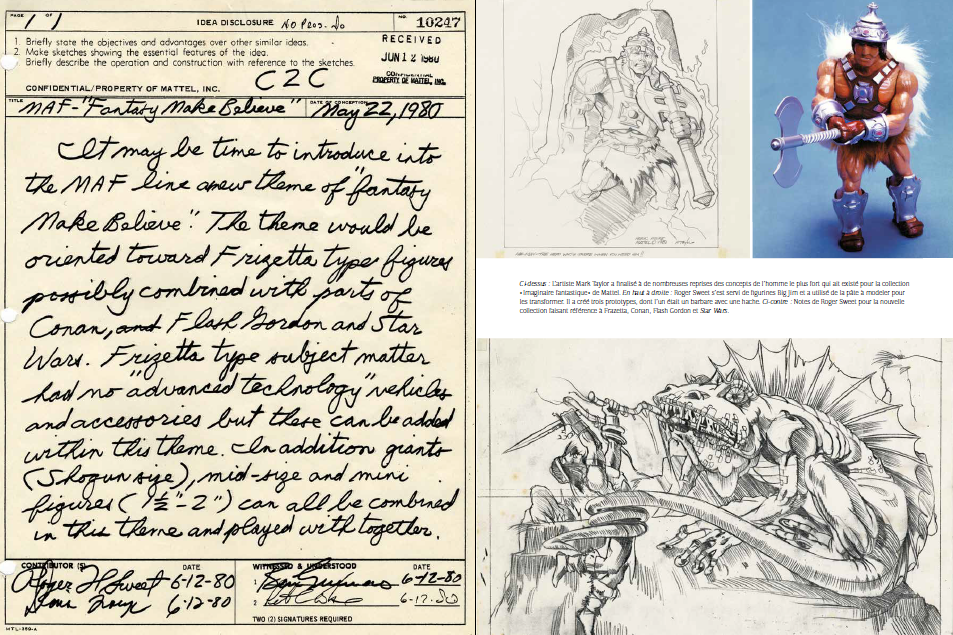 PAGE 1 OF 1
IDEA DISCLOSURE
NO. 10247
1. Briefly state the objectives and advantages over other similar ideas.
2. Make sketches showing the essential features of the idea.
Briefly describe the operation and construction with reference to the sketches.
RECEIVED
JUN 12 1980
CONFIDENTIAL
PROPERTY OF MATTEL, INC.
C2C
CONFIDENTIAL/PROPERTY OF MATTEL, INC.
TITLE MAF-"Fantasy Make Believe" DATE OF CONCEPTION May 22, 1980
It may be time to introduce into
the MAF line a new theme of "fantasy
Make Believe". The theme would be
oriented toward Frizetta type figures
possibly combined with parts of
Conan, and Flash Gordon and Star
Wars. Frizetta type subject matter
had no "advanced technology" vehicles
and accessories but these can be added
within this theme. In addition giants
(Shogun size), mid-size and mini
figures (1½"-2") can all be combined
in this theme and played with together.
CONTRIBUTOR (S) DATE
Roger H Sweet 6-12-80
6-12-80
WITNESSED & UNDERSTOOD DATE
1 6-12-80
2 6-17-80
TWO (2) SIGNATURES REQUIRED
MTL-359-A
Ci-dessus : L'artiste Mark Taylor a finalisé à de nombreuses reprises des concepts de l'homme le plus fort qui ait existé pour la collection
«Imaginaire fantastique» de Mattel. En haut à droite : Roger Sweet s'est servi de figurines Big Jim et a utilisé de la pâte à modeler pour
les transformer. Il a créé trois prototypes, dont l'un était un barbare avec une hache. Ci-contre : Notes de Roger Sweet pour la nouvelle
collection faisant référence à Frazetta, Conan, Flash Gordon et Star Wars.